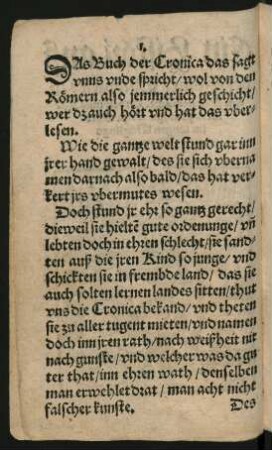 1.
DAs Buch der Cronica das sagt
vnns vnde spricht/wol von den
Römern also jemmerlich geschicht/
wer dz auch hört vnd hat das vber-
lesen.
Wie die gantze welt stund gar inn
jrer hand gewalt/des sie sich vberna
men darnach also bald/das hat ver-
kert jrs vbermutes wesen.
Doch stund jr ehr so gantz gerecht/
dieweil sie hieltē gute ordenunge/vñ
lebten doch in ehren schlecht/sie sand-
ten auß die jren Kind so junge/vnd
schickten sie in frembde land/das sie
auch solten lernen landes sitten/thut
vns die Cronica bekand/vnd theten
sie zu aller tugent mieten/vnd namen
doch inn jren rath/nach weißheit nit
nach gunste/vnd welcher was da gu
ter that/inn ehren wath/denselben
man erwehlet drat/man acht nicht
falscher kunste.
Des